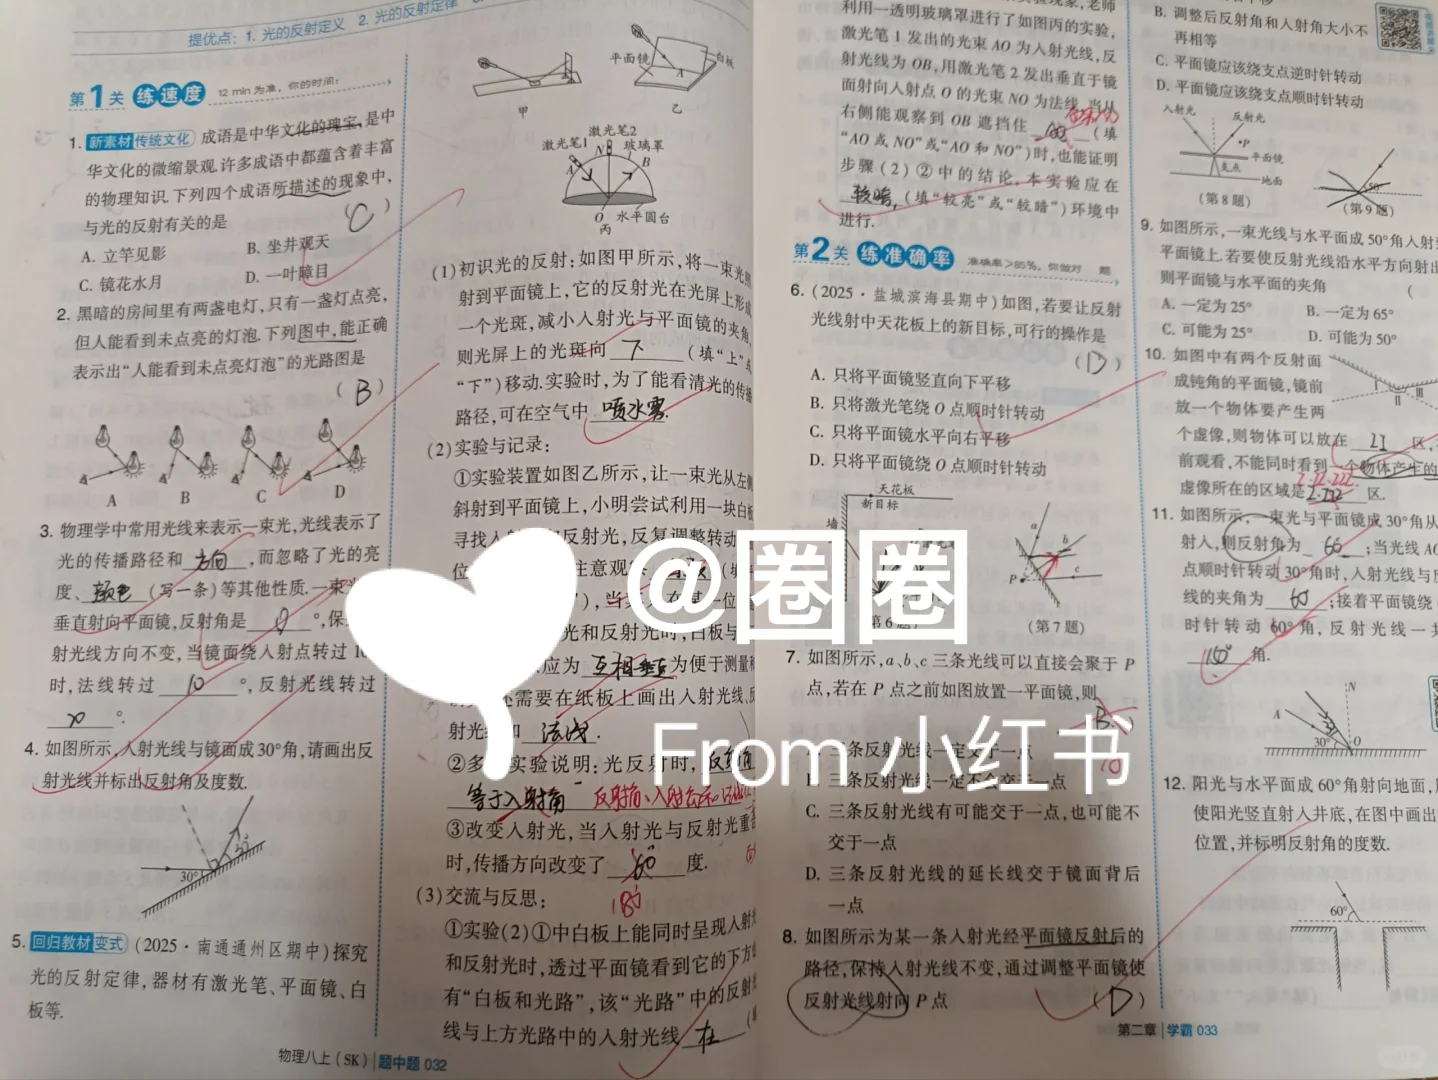 提优点：1. 光的反射定义 2. 光的反射定律
第1关 练速度 12 min为准，你的时间：
1. 新素材 传统文化 成语是中华文化的瑰宝,是中
华文化的微缩景观.许多成语中都蕴含着丰富
的物理知识.下列四个成语所描述的现象中,
与光的反射有关的是 (C)
A. 立竿见影 B. 坐井观天
C. 镜花水月 D. 一叶障目
2. 黑暗的房间里有两盏电灯,只有一盏灯点亮,
但人能看到未点亮的灯泡.下列图中,能正确
表示出“人能看到未点亮灯泡”的光路图是
(B)
A B C D
3. 物理学中常用光线来表示一束光,光线表示了
光的传播路径和 方向 ,而忽略了光的亮
度、 颜色 (写一条)等其他性质.一束光
垂直射向平面镜,反射角是 0 °,保
射光线方向不变,当镜面绕入射点转过
时,法线转过 10 °,反射光线转过
°.
4. 如图所示,入射光线与镜面成30°角,请画出反
射光线并标出反射角及度数.
30°
5. 回归教材 变式 (2025·南通通州区期中)探究
光的反射定律,器材有激光笔、平面镜、白
板等.
物理八上(SK) 题中题 032
平面镜 白板
A
甲 乙
激光笔2
激光笔1 N 玻璃罩
A B
O 水平圆台
丙
(1)初识光的反射:如图甲所示,将一束光
射到平面镜上,它的反射光在光屏上形成
一个光斑,减小入射光与平面镜的夹角,
则光屏上的光斑向 下 (填“上”或
“下”)移动.实验时,为了能看清光的传播
路径,可在空气中 喷水雾.
(2)实验与记录:
①实验装置如图乙所示,让一束光从左侧
斜射到平面镜上,小明尝试利用一块白板
寻找入射 反射光,反复调整转动
位 注意观
),当
光和反射光时,白板与
应为 互相垂直 为便于测量
还需要在纸板上画出入射光线、反
射光 法线 .
②多 实验说明:光反射时, 反射角
等于入射角 反射角、入射
③改变入射光,当入射光与反射光重合
时,传播方向改变了 60 度.
180
(3)交流与反思:
①实验(2)①中白板上能同时呈现入射光
和反射光时,透过平面镜看到它的下方
有“白板和光路”,该“光路”中的反射
线与上方光路中的入射光线 在
利用一透明玻璃罩进行了如图丙的实验,
激光笔1发出的光束AO为入射光线,反
射光线为OB,用激光笔2发出垂直于镜
面射向入射点O的光束NO为法线.当从
右侧能观察到OB遮挡住 (填
“AO或NO”或“AO和NO”)时,也能证明
步骤(2)②中的结论.本实验应在
较暗 (填“较亮”或“较暗”)环境中
进行.
第2关 练准确率 准确率>85%，你做对 题
6. (2025·盐城滨海县期中)如图,若要让反射
光线射中天花板上的新目标,可行的操作是
(D)
A. 只将平面镜竖直向下平移
B. 只将激光笔绕O点顺时针转动
C. 只将平面镜水平向右平移
D. 只将平面镜绕O点顺时针转动
天花板
新目标
墙
a
b
P c
第6题) (第7题)
7. 如图所示,a、b、c三条光线可以直接会聚于P
点,若在P点之前如图放置一平面镜,则
B
三条反射光线一定交于一点
三条反射光线一定不会交于一点
C. 三条反射光线有可能交于一点,也可能不
交于一点
D. 三条反射光线的延长线交于镜面背后
一点
8. 如图所示为某一条入射光经平面镜反射后的
路径,保持入射光线不变,通过调整平面镜使
反射光线射向P点 (D)
第二章 学霸 033
B. 调整后反射角和入射角大小不
再相等
C. 平面镜应该绕支点逆时针转动
D. 平面镜应该绕支点顺时针转动
入射光 反射光
P
平面镜
支点
地面
50°
(第8题) (第9题)
9. 如图所示,一束光线与水平面成50°角入射
平面镜上.若要使反射光线沿水平方向射出
则平面镜与水平面的夹角 (
A. 一定为25° B. 一定为65°
C. 可能为25° D. 可能为50°
10. 如图中有两个反射面
成钝角的平面镜,镜前
放一个物体要产生两
I II III
个虚像,则物体可以放在 II 区,
前观看,不能同时看到一个物体产生的
虚像所在的区域是 区.
11. 如图所示,一束光与平面镜成30°角从
射入,则反射角为 60 ;当光线AO
点顺时针转动30°角时,入射光线与
线的夹角为 60 ;接着平面镜绕
时针转动60°角,反射光线一共
150° 角.
N
A
30°
O
12. 阳光与水平面成60°角射向地面,
使阳光竖直射入井底,在图中画出
位置,并标明反射角的度数.
60°
@圈圈
From小红书